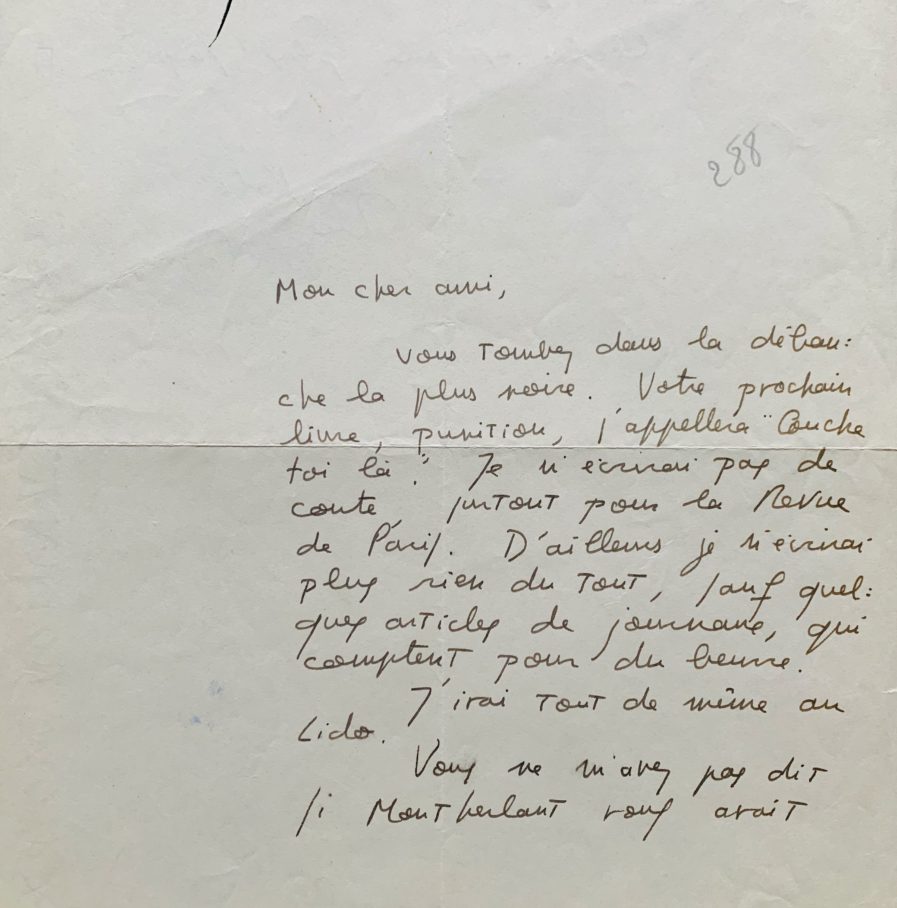 288
Mon cher ami,
Vous tombez dans la débau:
che la plus noire. Votre prochain
livre, punition, s'appellera "Couche
toi là". Je n'écrirai pas de
conte, surtout pour la Revue
de Paris. D'ailleurs je n'écrirai
plus rien du tout, sauf quel:
ques articles de journaux, qui
comptent pour du beurre.
J'irai tout de même au
Lido.
Vous ne m'avez pas dit
si Montherlant vous avait